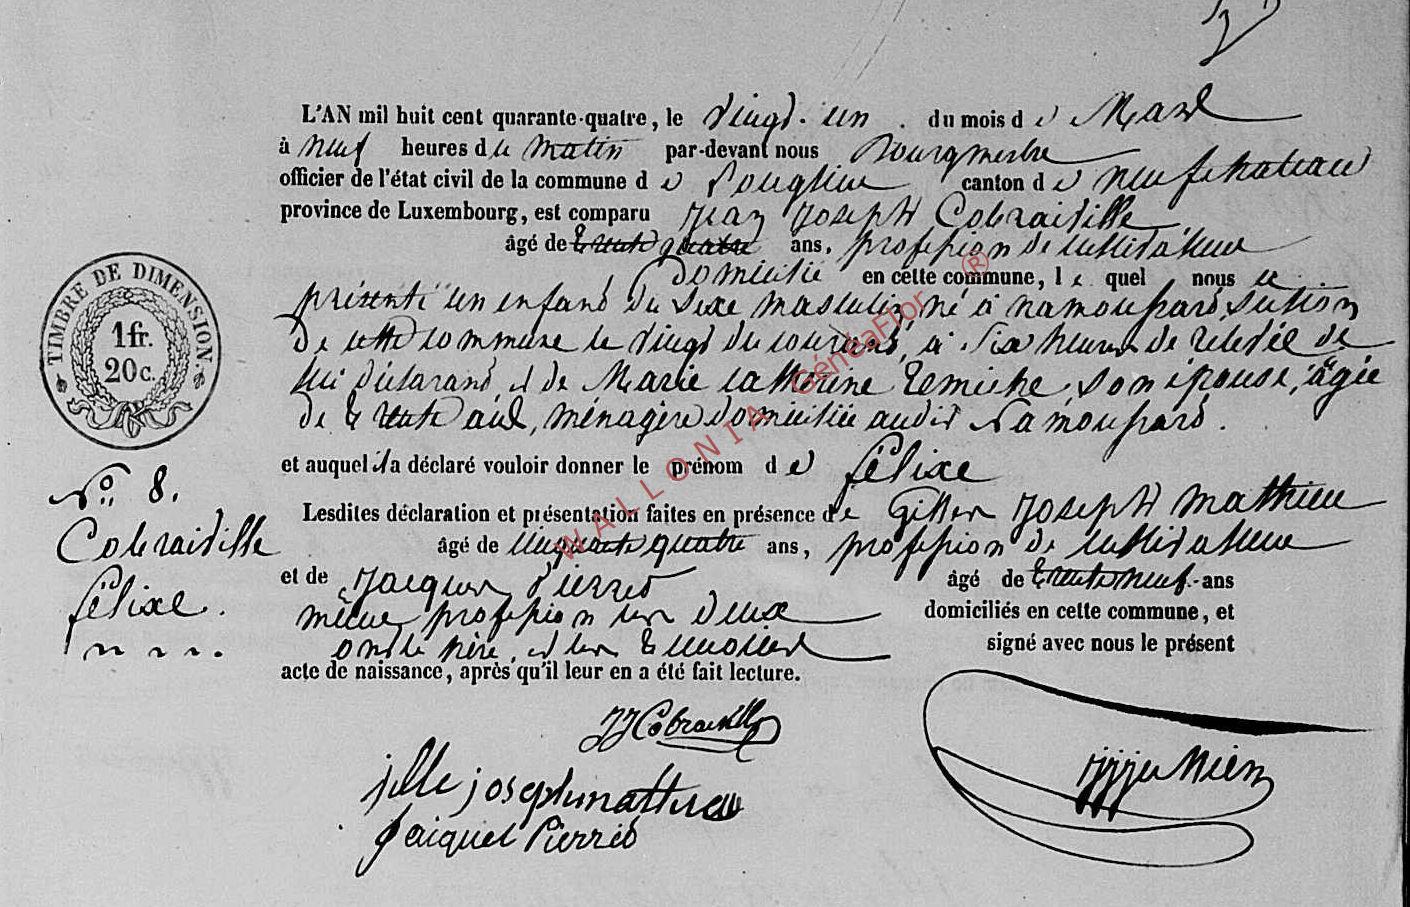 L'AN mil huit cent quarante-quatre, le vingt-un du mois de Mars
à neuf heures du matin par-devant nous Bourgmestre
officier de l'état civil de la commune de canton de neufchateau
province de Luxembourg, est comparu Jean Joseph Cobraiville
âgé de trente quatre ans, profession de cultivateur
Domicilié en cette commune, lequel nous a
présenté un enfant du sexe masculin, né à namoussard, section
de cette commune le vingt du courant, à six heures de relevée de
lui déclarant, et de Marie Catherine son épouse, âgée
de trente ans, ménagère domiciliée audit Namoussard.
et auquel il a déclaré vouloir donner le prénom de félixe
No 8.
Lesdites déclaration et présentation faites en présence de Joseph Mathieu
Cobraiville
âgé de cinquante quatre ans, profession de cultivateur
félixe.
et de Jacques Pierret âgé de trente neuf ans
même profession les deux domiciliés en cette commune, et
ont le père, et les témoins signé avec nous le présent
acte de naissance, après qu'il leur en a été fait lecture.
JJ Cobraiville
joseph mathieu
jaiques Pierret
TIMBRE DE DIMENSION.
1fr.
20c.
WALLONIA GénéaFlor ®